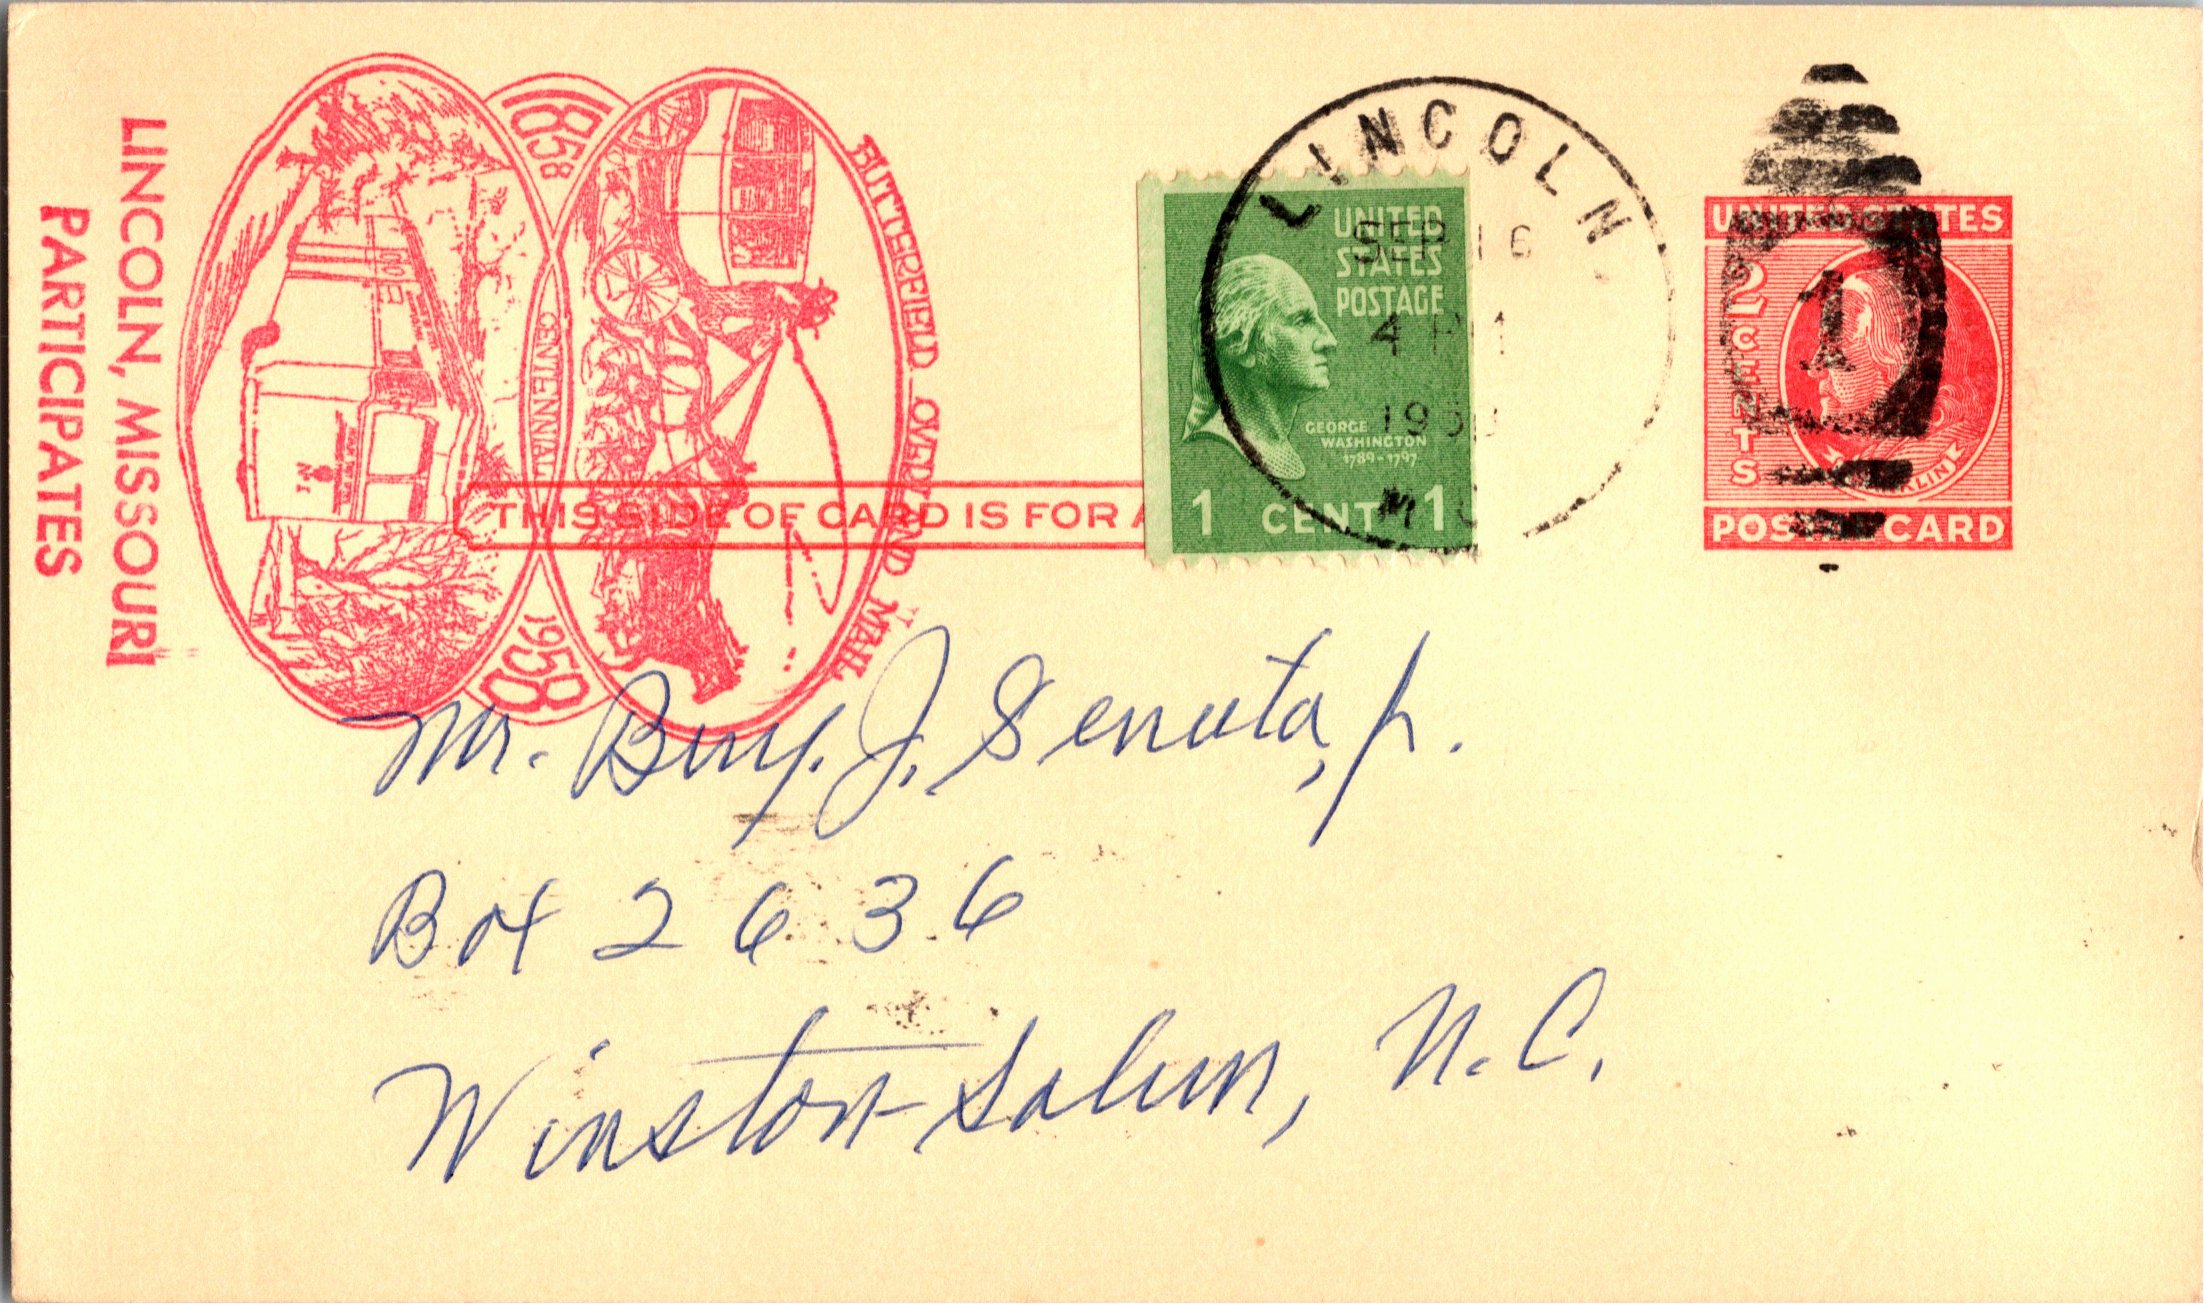 LINCOLN, MISSOURI
PARTICIPATES
1858
CENTENNIAL
1958
BUTTERFIELD OVERLAND MAIL
THIS SIDE OF CARD IS FOR A
UNITED
STATES
POSTAGE
GEORGE
WASHINGTON
1789-1797
1 CENT 1
LINCOLN
SEP 16
4 PM
MO
UNITED STATES
2 CENTS
1
POSTAL CARD
Mr. Benj. J. Senuta, Jr.
Box 2636
Winston-Salem, N.C.